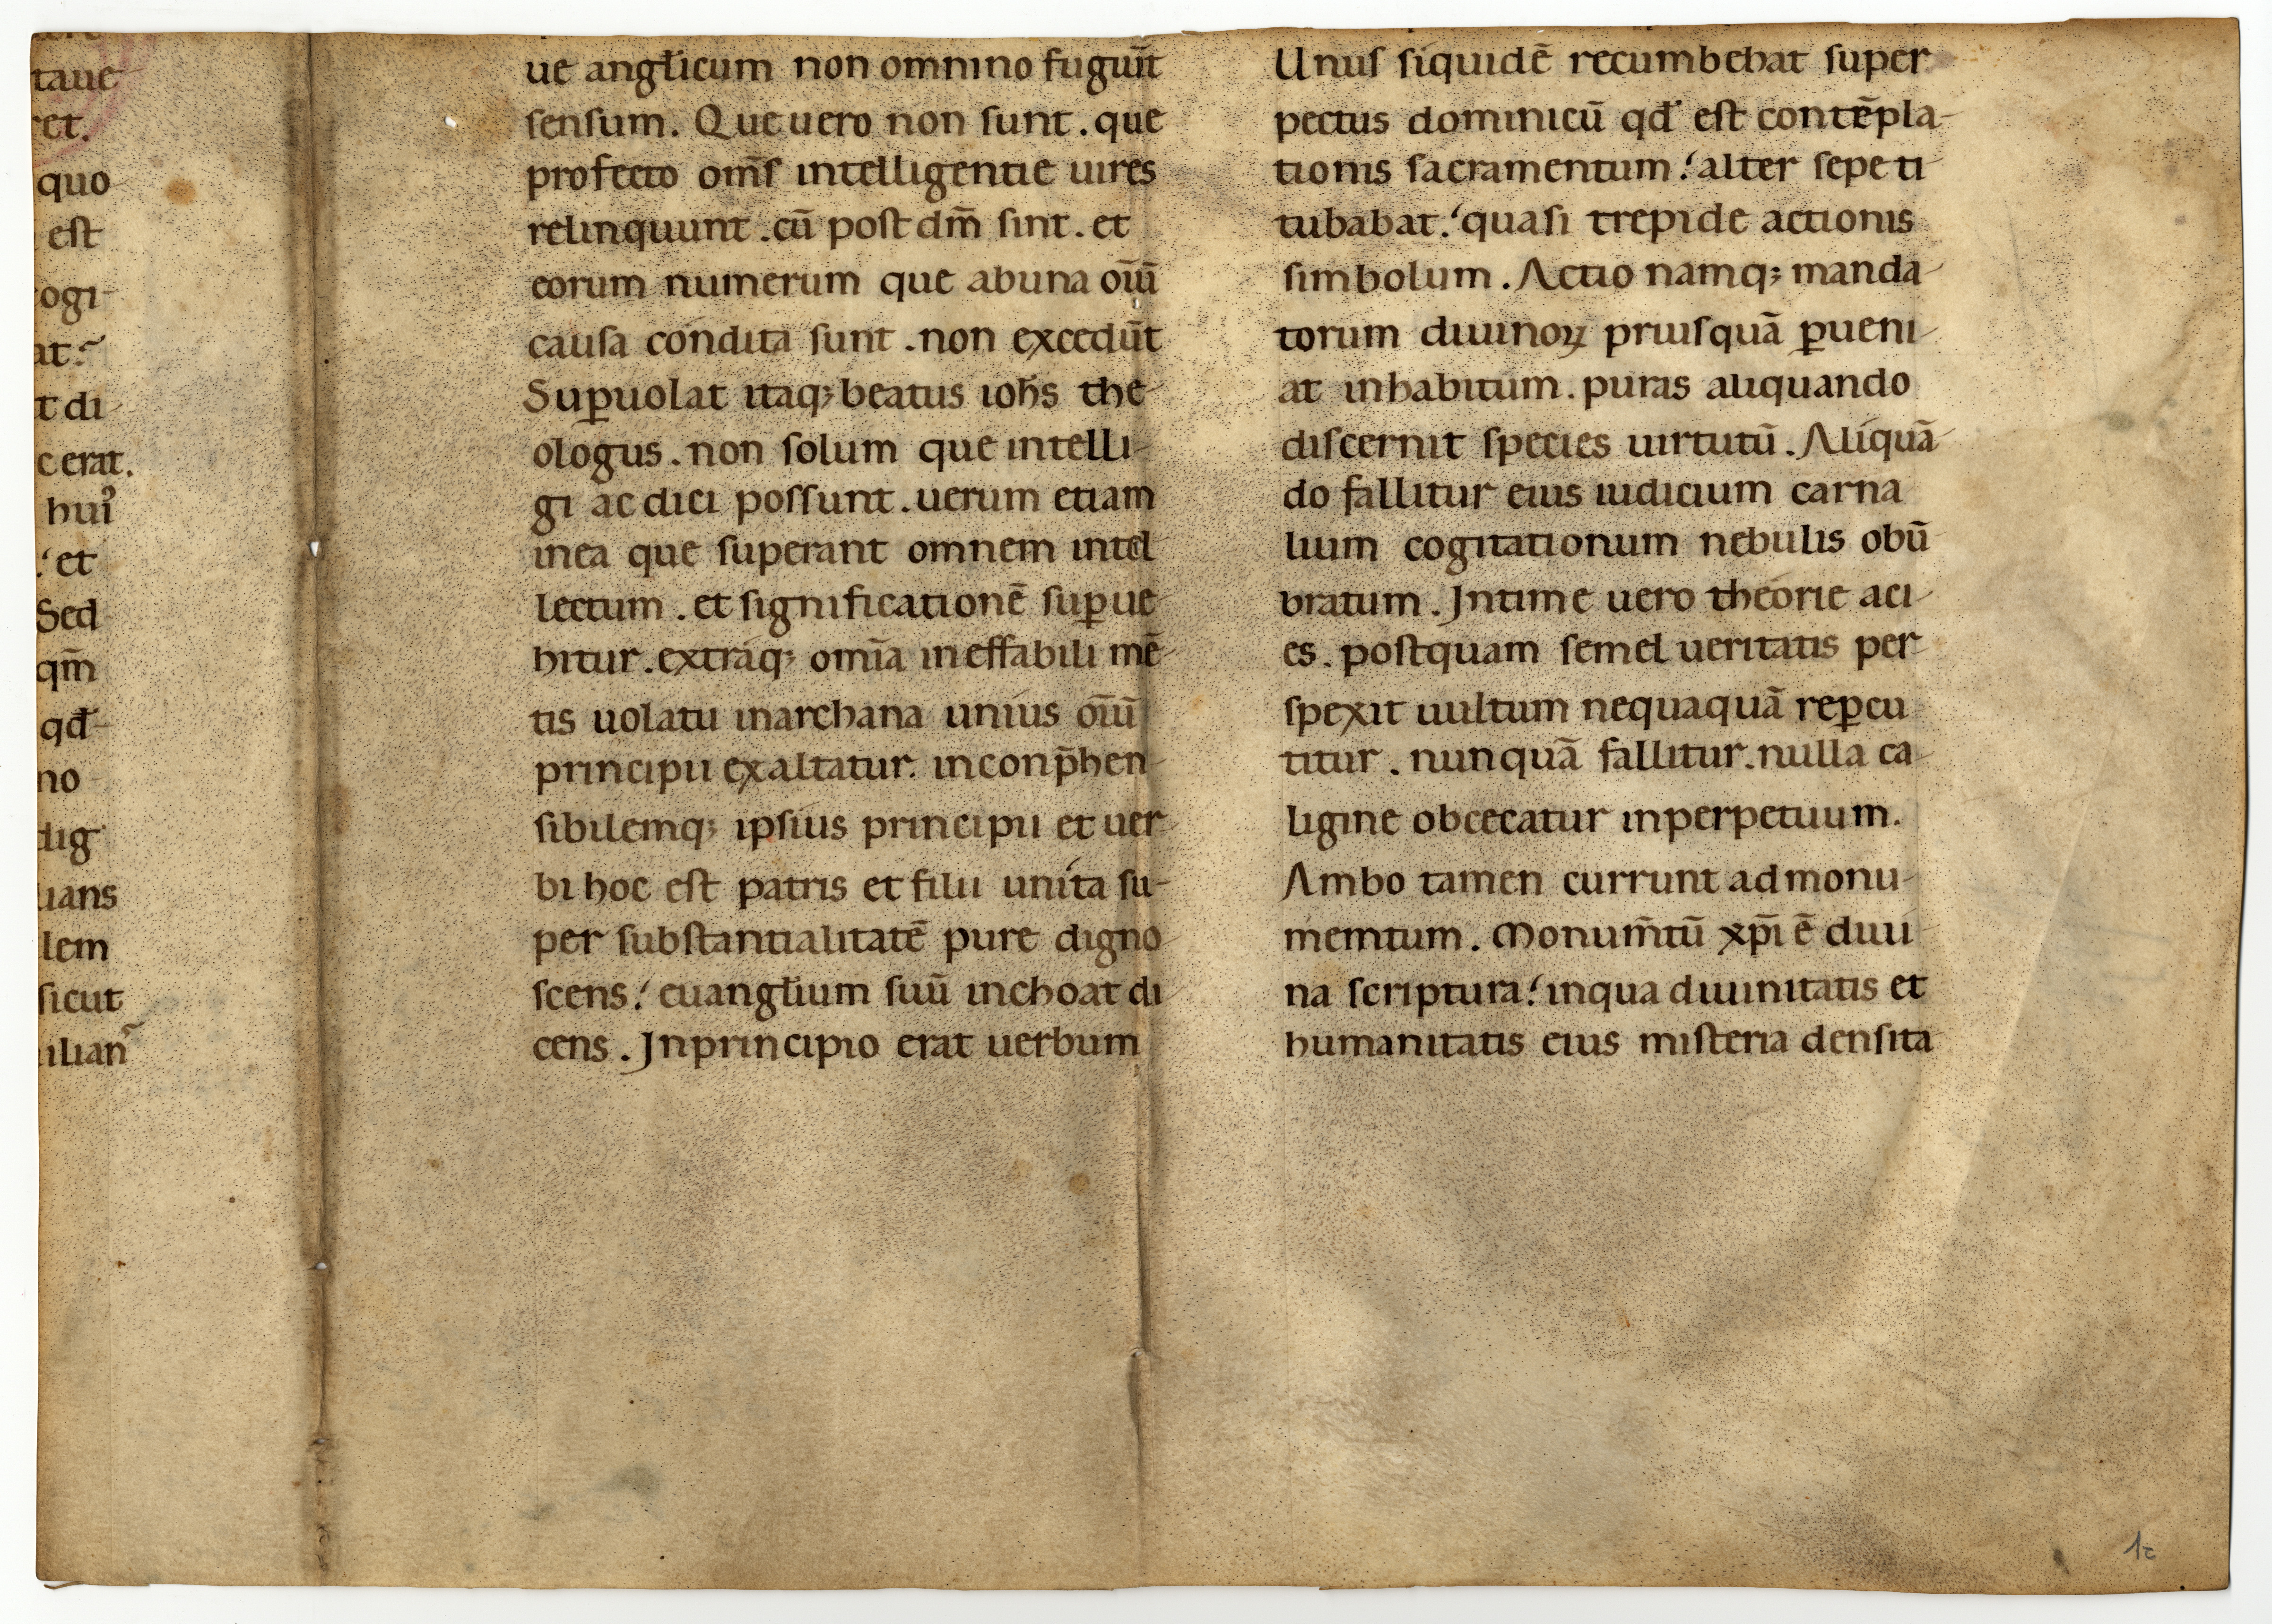 taue
et.
quo
est
ogi-
at:
t di
cerat.
hui᷒
.' et
Sed
qm̅
qđ
no
dig
uans
lem
sicut
ilian
ue angłicum non omnino fugiun̅t
senſum. Que uero non ſunt. que
profecto om̅ſ intelligentie uires
relinquunt. cū poſt dm̅ ſint. et
eorum numerum que abuna oīū
cauſa condita ſunt. non excedūt
Suꝑuolat itaq; beatus ioħs the-
ologus. non ſolum que intelli-
gi ac dici poſſunt. uerum etiam
inea que ſuperant omnem intel
lectum. et ſignificationē ſuꝑue-
hitur. extraq; om̅ia ineffabili mē-
tis uolatu inarchana unius oīū
principii exaltatur. inconp̄hen-
ſibilemq; ipſius principii et uer-
bi hoc eſt patris et filii unita ſu-
per ſubſtantialitatē pure digno-
scens.' euangłium ſuū inchoat di-
cens. Jnprincipio erat uerbum
Unuſ ſiquidē recumbebat ſuper
pectus dominicū qđ eſt contēpla-
tionis ſacramentum.' alter ſepe ti-
tubabat.' quaſi trepide actionis
ſimbolum. Actio namq; manda-
torum diuinoꝝ priuſquā ꝑueni-
at inhabitum. puras aliquando
diſcernit ſpecies uirtutū. Aliquā-
do fallitur eius iudicium carna
lium cogitationum nebulis obū
bratum. Jntime uero theorie aci-
es. poſtquam ſemel ueritatis per
ſpexit uultum nequaquā reꝑcu-
titur. nunquā fallitur. nulla ca-
ligine obcecatur inperpetuum.
Ambo tamen currunt admonu-
mentum. Monum̅tū xp̅i ē diui
na ſcriptura.' inqua diuinitatis et
humanitatis eius miſteria denſita-